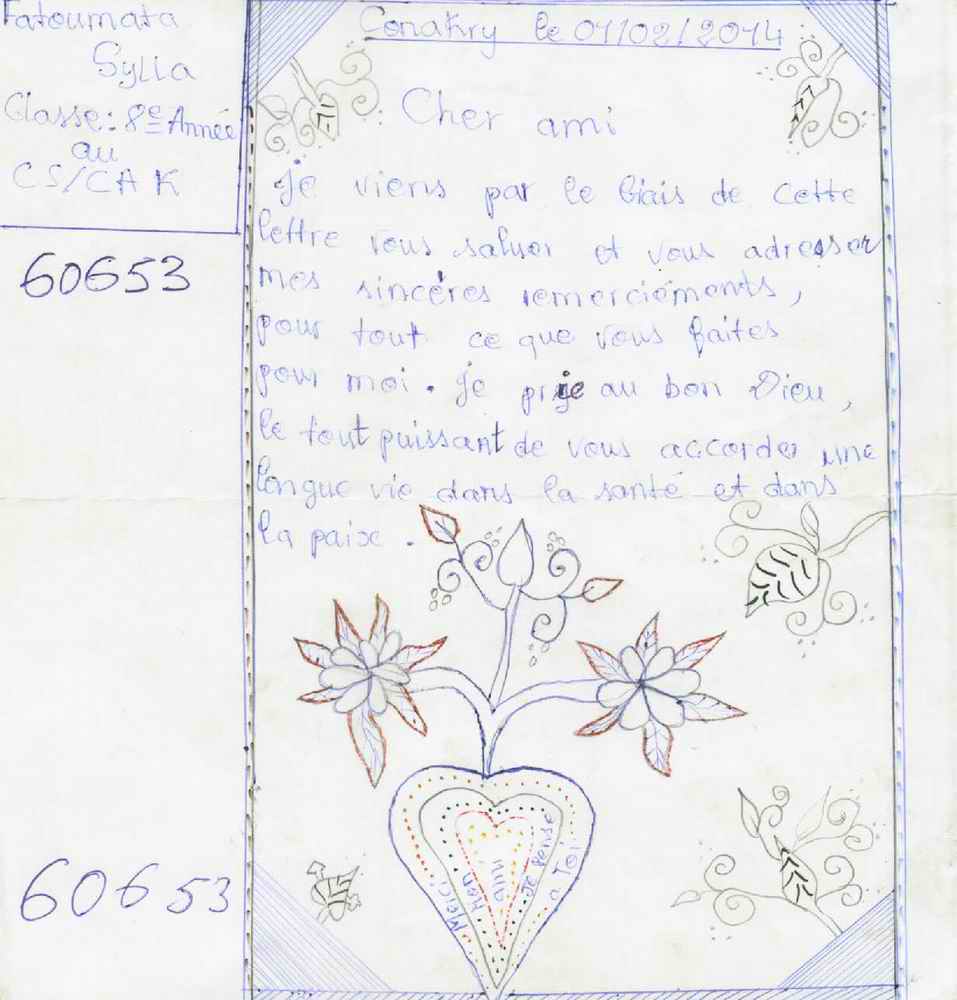 Fatoumata
Sylla
Classe: 8e Année
au
CS/CAK
60653
60653
Conakry le 01/02/2014
Cher ami
Je viens par le biais de cette
lettre vous saluer et vous adresser
mes sincéres remerciéments,
pour tout ce que vous faites
pour moi. Je prie au bon Dieu,
le tout puissant de vous accorder une
longue vie dans la santé et dans
la paixe.
Merci
Mon
ami
Je pense
a Toi